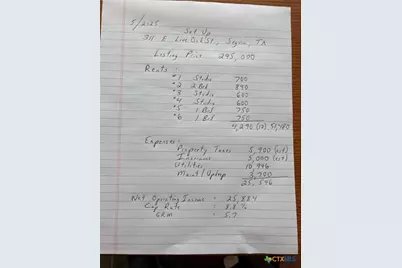 5/2025
Set Up
311 E. Live Oak St., Seguin, TX
Listing Price 295,000
Rents:
#1 Studio 700
#2 2 Bed 890
#3 Studio 600
#4 Studio 600
#5 1 Bed 750
#6 1 Bed 750
4,290 (12) 51,480
Expenses:
Property Taxes 5,900 (est)
Insurance 5,000 (est)
Utilities 10,996
Maint/ 3,700
25,596
Net Operating Income = 25,884
Cap Rate = 8.8%
GRM = 5.7
CTXMLS